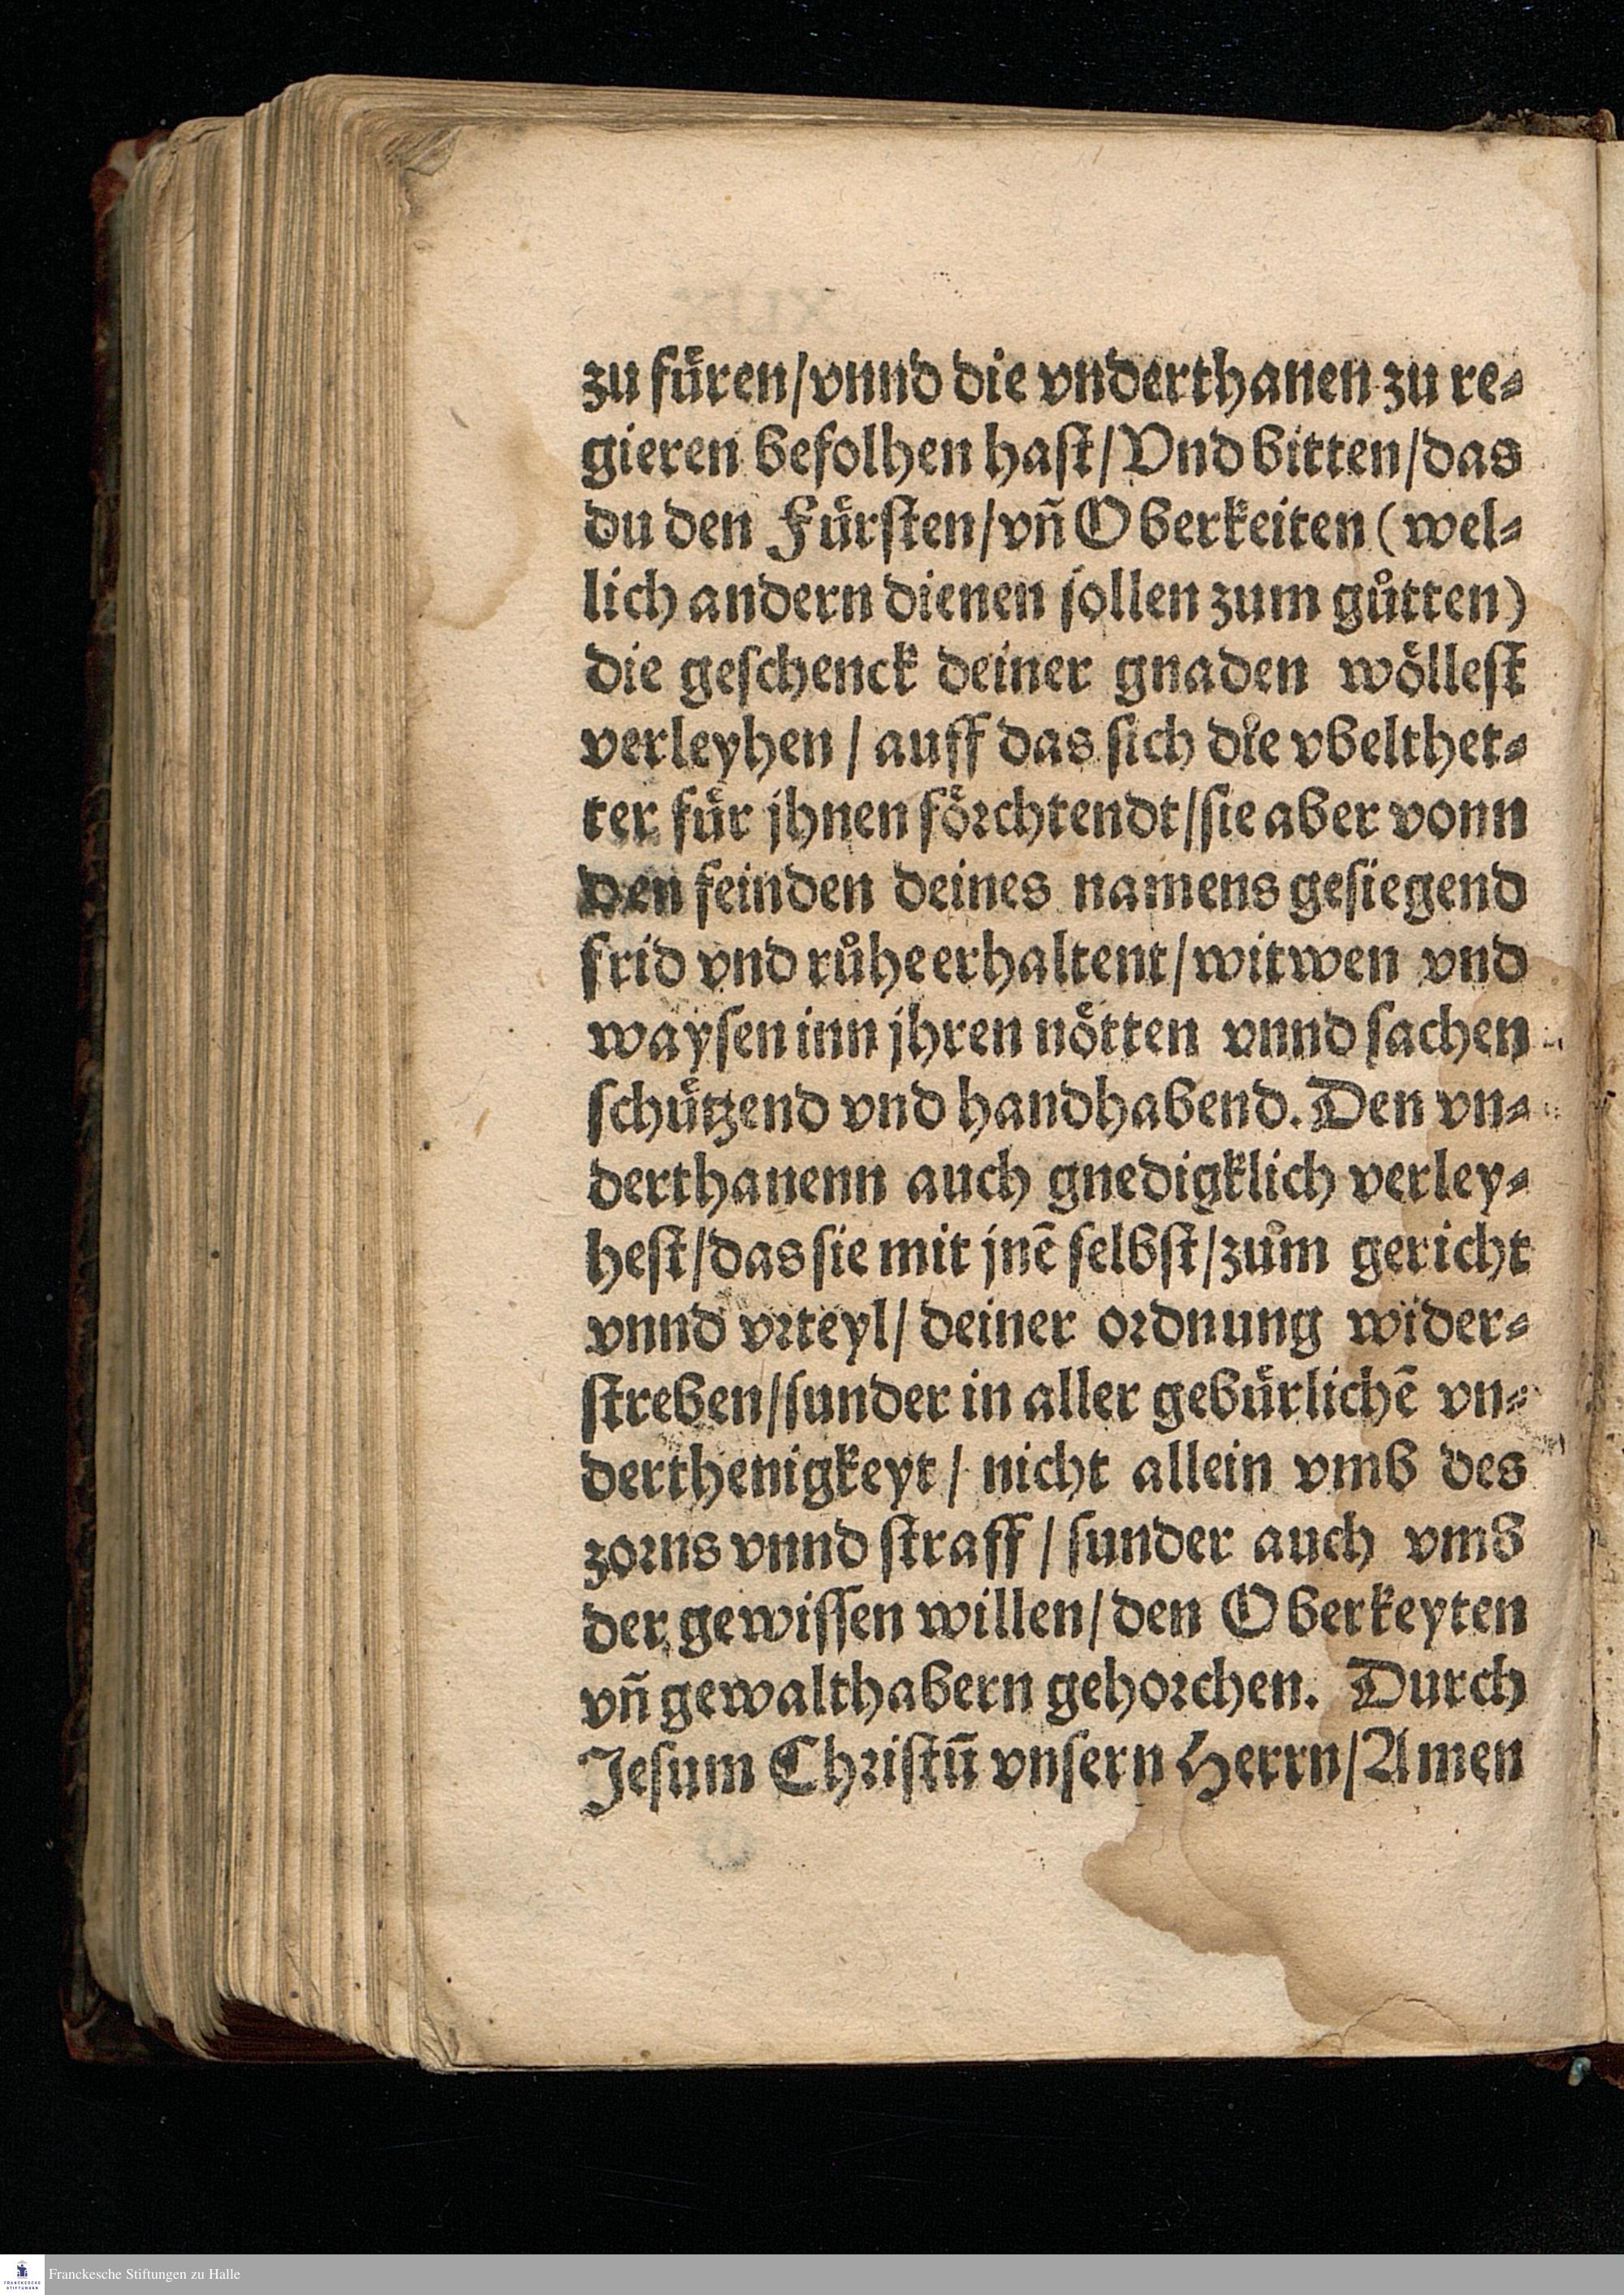 zu fuͤren/vnnd die vnderthanen zu re⸗
gieren befolhen haſt/Vnd bitten/das
du den Fuͤrſten/vñ Oberkeiten (wel⸗
lich andern dienen ſollen zum guͦtten)
die geſchenck deiner gnaden woͤlleſt
verleyhen / auff das ſich die vbelthet⸗
ter fuͤr jhnen foͤrchtendt/ſie aber vonn
den feinden deines namens geſiegend
frid vnd ruͦhe erhaltent/witwen vnd
wayſen inn jhren noͤtten vnnd ſachen
ſchuͤtzend vnd handhabend. Den vn⸗
derthanenn auch gnedigklich verley⸗
heſt/das ſie mit jnē ſelbſt/zuͦm gericht
vnnd vrteyl/ deiner ordnung wider⸗
ſtreben/ſunder in aller gebuͤrlichē vn⸗
derthenigkeyt / nicht allein vmb des
zorns vnnd ſtraff / ſunder auch vmb
der gewiſſen willen/den Oberkeyten
vñ gewalthabern gehorchen. Durch
Jeſum Chriſtū vnſern Herrn/Amen
Franckesche Stiftungen zu Halle